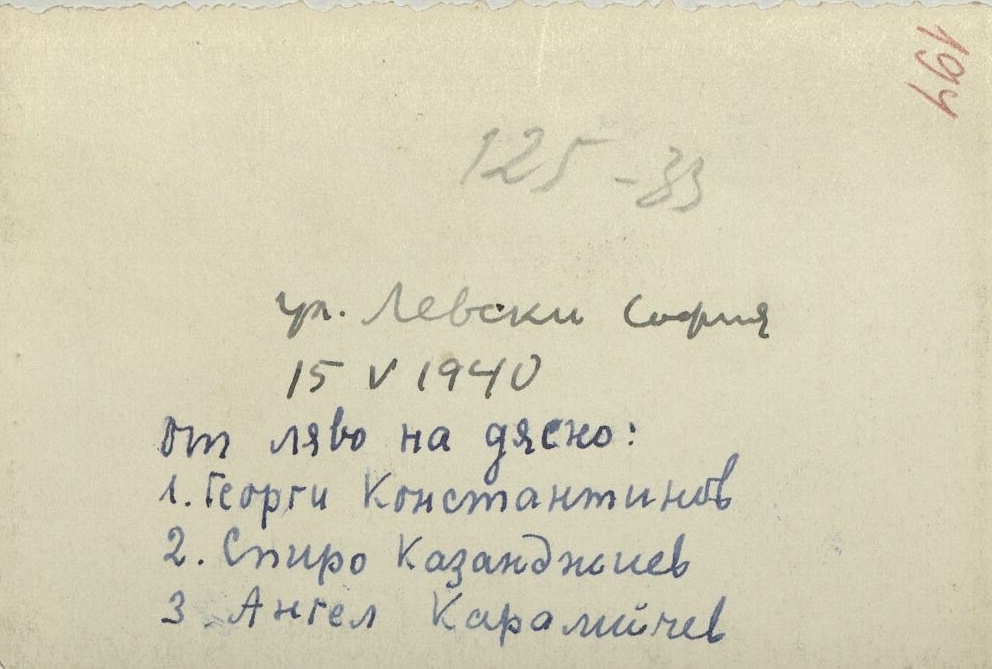 194
125-33
ул. Левски София
15 V 1940
от ляво на дясно:
1. Георги Константинов
2. Спиро Казанджиев
3. Ангел Каралийчев